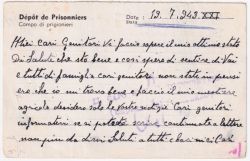 Dépôt de Prisonniers
Campo di prigionieri
Date
Data
13. 7. 943. XXI
Miei Cari Genitori Vi faccio sapere il mio ottimo stato
Di Salute che sto bene e così spero di sentire di Voi
e tutti di famiglia cari genitori non state in pensie
ro che io mi trovo bene e faccio il mio mestiere
agricolo desidero solo le vostre notizie Cari genitori
informatevi se si potete scrive centinaia e lettere
non più da dirvi Saluti a tutti e baci miei Cari